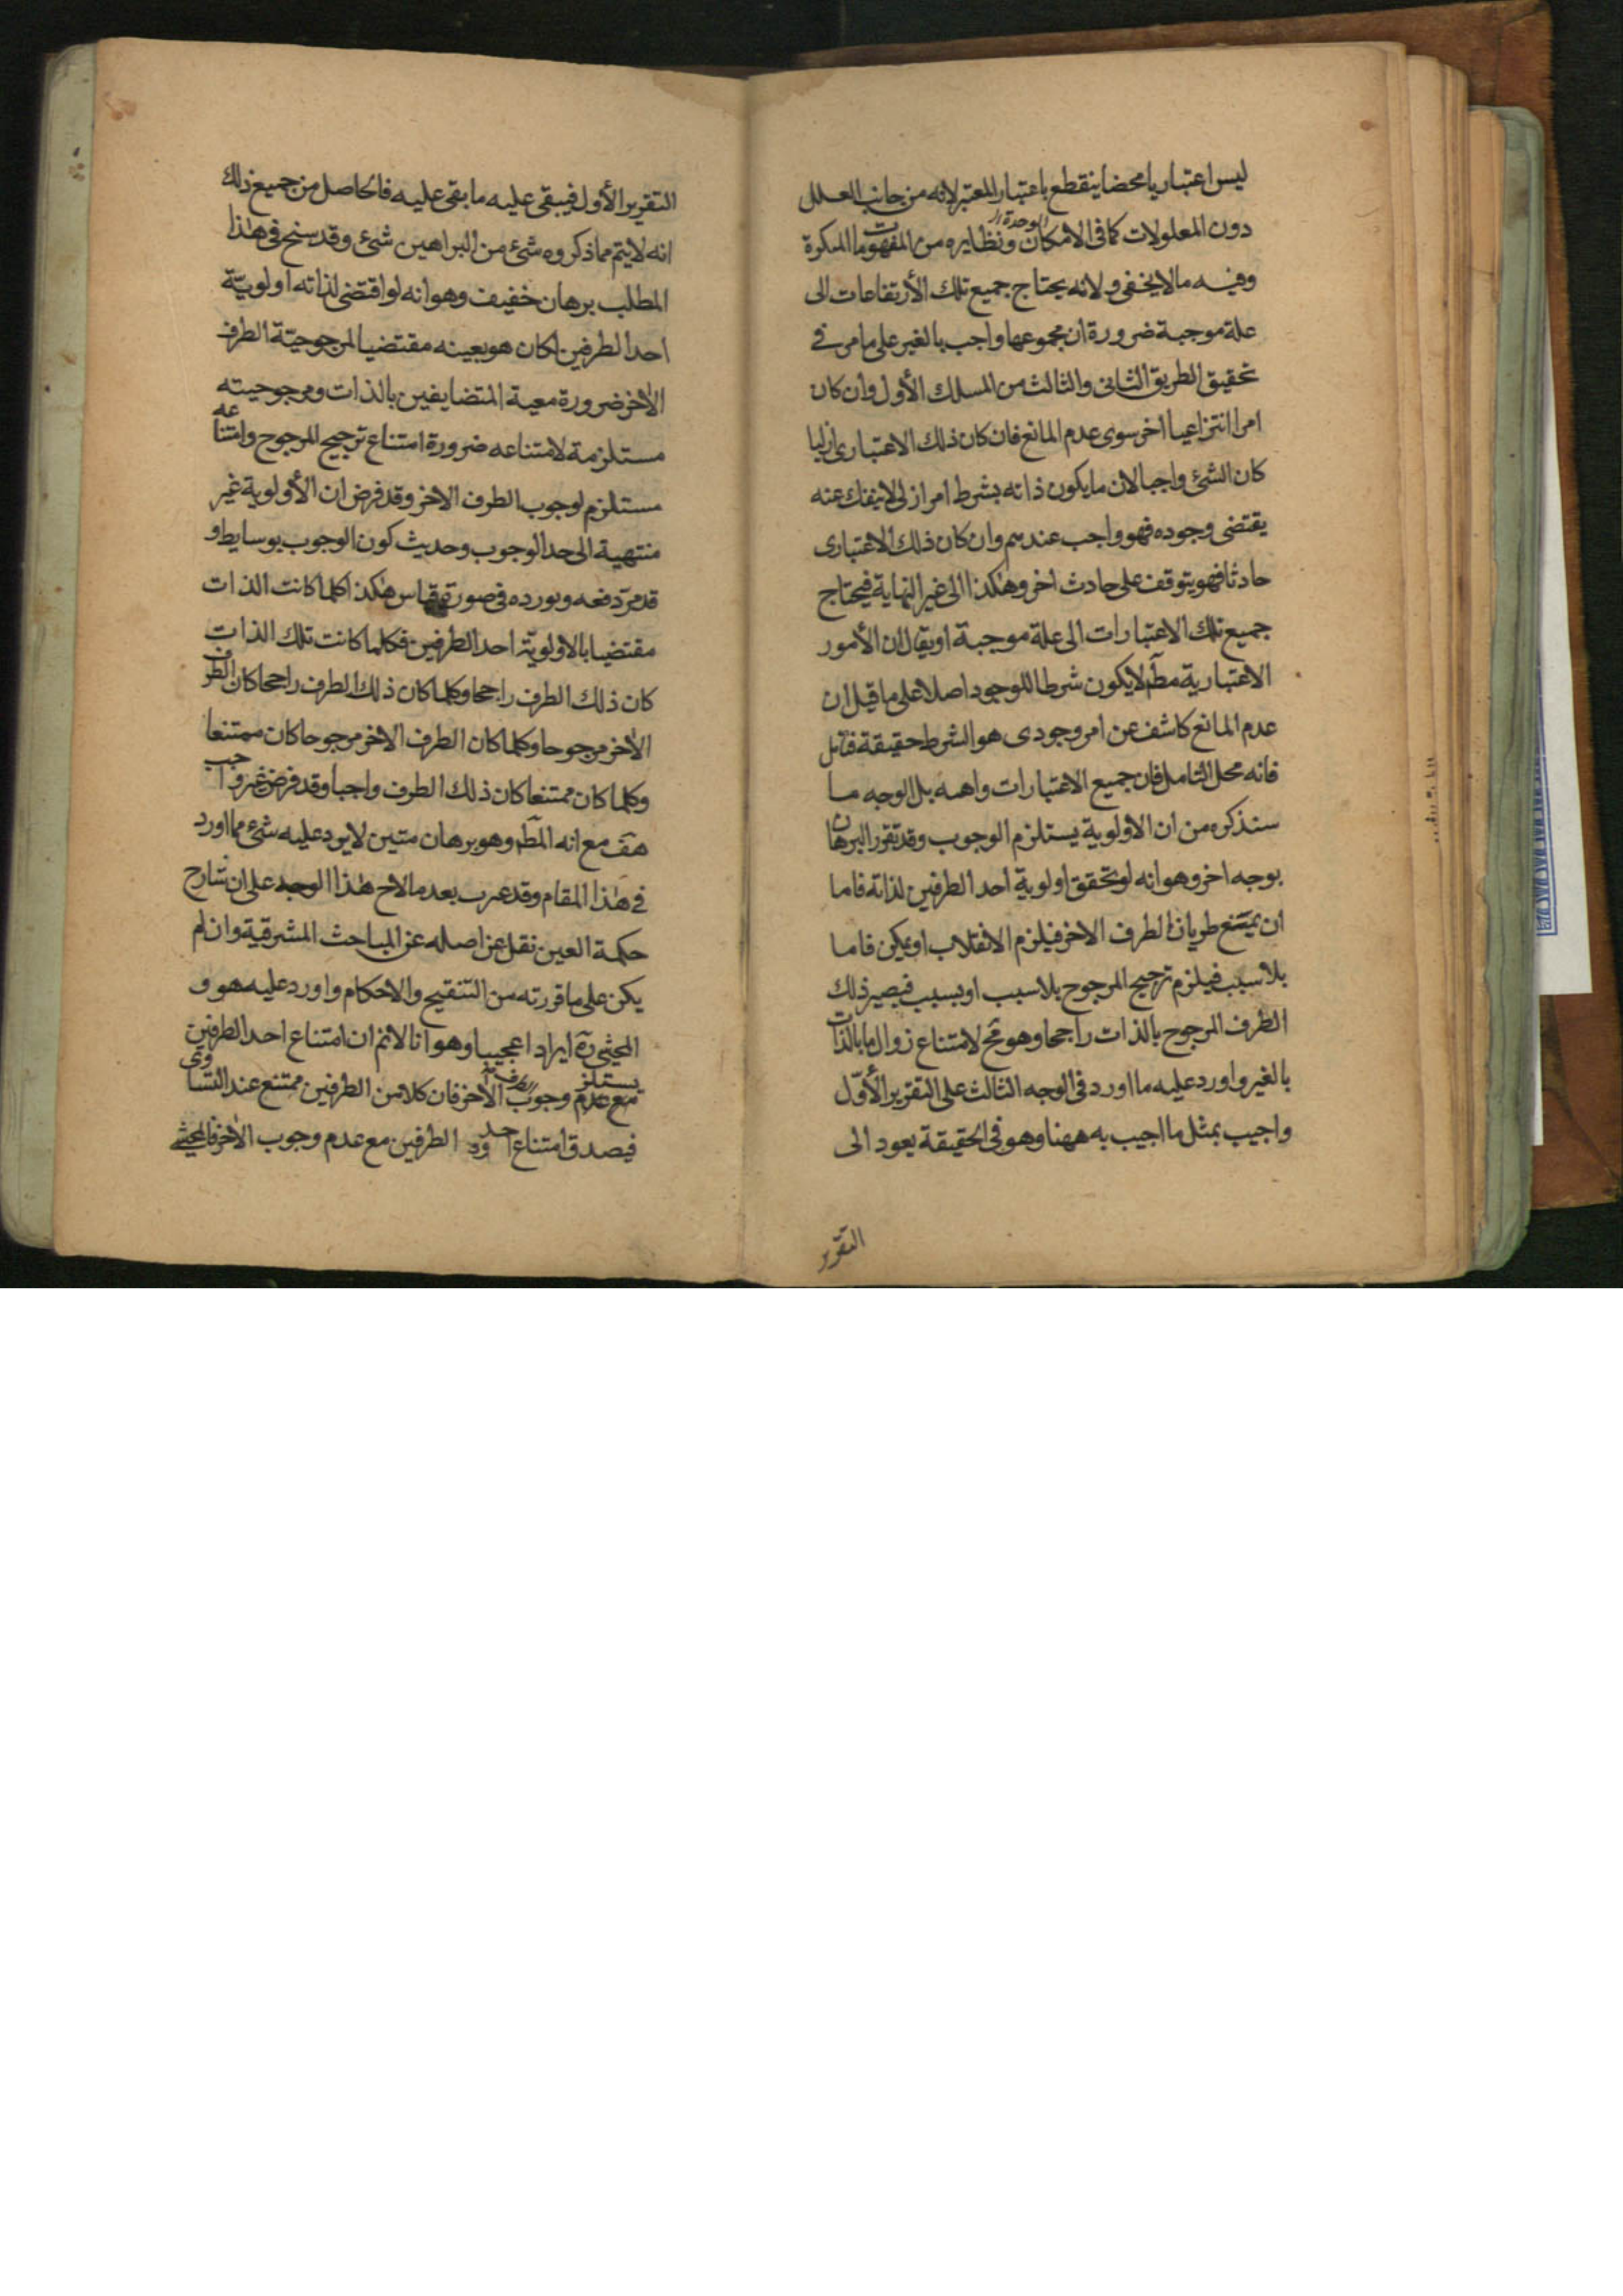 ليس اعتباريا محضا ينقطع باعتبار المعتبر لانه من جانب العلل
دون المعلولات كما فى الامكان والوحدة ونظايره من المفهومات المكررة
وفيه ما لا يخفى ولانه يحتاج جميع تلك الأرتفاعات الى
علة موجبة ضرورة ان مجموعها واجب بالغير على ما مر فى
تحقيق الطريق الثانى والثالث من المسلك الأول وان كان
امرا انتزاعيا اخر سوى عدم المانع فان كان ذلك الاعتبارى ازليا
كان الشئ واجبا لان ما يكون ذاته بشرط امر ازلى لا ينفك عنه
يقتضى وجوده فهو واجب عندهم وان كان ذلك الاعتبارى
حادثا فهو يتوقف على حادث اخر وهكذا الى غير النهاية فيحتاج
جميع تلك الاعتبارات الى علة موجبة او يقال ان الأمور
الاعتبارية مطلا يكون شرطا للوجود اصلا على ما قيل ان
عدم المانع كاشف عن امر وجودى هو الشرط حقيقة فتأمل
فانه محل التأمل فان جميع الاعتبارات واهمه بل الوجه ما
سنذكره من ان الاولوية يستلزم الوجوب وقد تقرر البرهان
بوجه اخر وهو انه لو تحقق اولوية احد الطرفين لذاته فاما
ان يمتنع طريان الطرف الاخر فيلزم الانقلاب او يمكن فاما
بلا سبب فيلزم ترجيح المرجوح بلا سبب او بسبب فيصير ذلك
الطرف المرجوح بالذات راجحا وهو مح لامتناع زوال ما بالذات
بالغير واورد عليه ما اورد فى الوجه الثالث على التقرير الأوّل
واجيب بمثل ما اجيب به ههنا وهو فى الحقيقة يعود الى
التقرير
التقرير الأول فيبقى عليه ما بقى عليه فالحاصل من جميع ذلك
انه لا يتم مما ذكروه شئ من البراهين شئ وقد سنح فى هذا
المطلب برهان خفيف وهو انه لو اقتضى لذاته اولويّة
احد الطرفين لكان هو بعينه مقتضيا لمرجوحيّة الطرف
الاخر ضرورة معية المتضايفين بالذات ومرجوحيته
مستلزمة لامتناعه ضرورة امتناع ترجيح المرجوح وامتناعه
مستلزم لوجوب الطرف الاخر وقد فرض ان الأولوية غير
منتهية الى حد الوجوب وحديث كون الوجوب بوسايط او
قد مرّ دفعه ونورده فى صورة قياس هكذا كلما كانت الذات
مقتضيا بالاولويّة احد الطرفين فكلما كانت تلك الذات
كان ذلك الطرف راجحا وكلما كان ذلك الطرف راجحا كان الطرف
الاخر مرجوحا وكلما كان الطرف الاخر مرجوحا كان ممتنعا
وكلما كان ممتنعا كان ذلك الطرف واجبا وقد فرض غير واجب
هف مع انه المط وهو برهان متين لا يرد عليه شئ مما اورد
فى هذا المقام وقد عرب بعد ما لاح هذا الوجه على ان شارح
حكمة العين نقل عن اصله عن المباحث المشرقية وان لم
يكن على ما قررته من التنقيح والاحكام واورد عليه هو و
المحشى ره ايراد اعجيبا وهو انا لا نم ان امتناع احد الطرفين
يستلزم وجوب الطرف الاخر فان كلا من الطرفين ممتنع عند التساوى
فيصدق امتناع احد الطرفين مع عدم وجوب الاخر فالمحشى